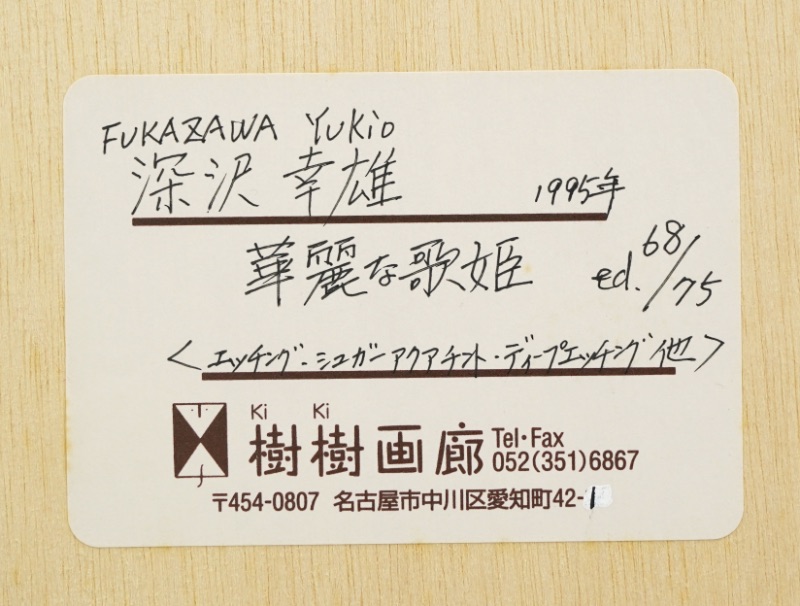 FUKAZAWA YUKIO
深沢 幸雄 1995年
華麗な歌姫 ed. 68/75
<エッチング・シュガーアクアチント・ディープエッチング他>
Ki Ki
樹樹画廊 Tel・Fax
052(351)6867
〒454-0807 名古屋市中川区愛知町42-1